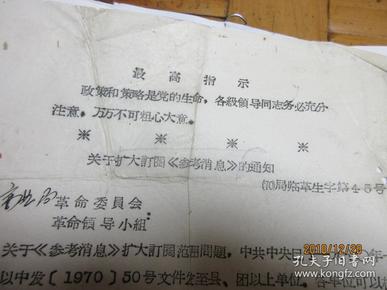 最高指示
政策和策略是党的生命，各級領导同志务必充分
注意，万万不可粗心大意。
※ ※ ※
关于扩大訂閱《参考消息》的通知
(70)局临革生字第45号
革命委員会
革命領导小組：
关于《参考消息》扩大訂閱范围問題，中共中央
以中发（1970）50号文件发至县、团以上单位。各单位可以
2018/12/28
孔夫子旧书网